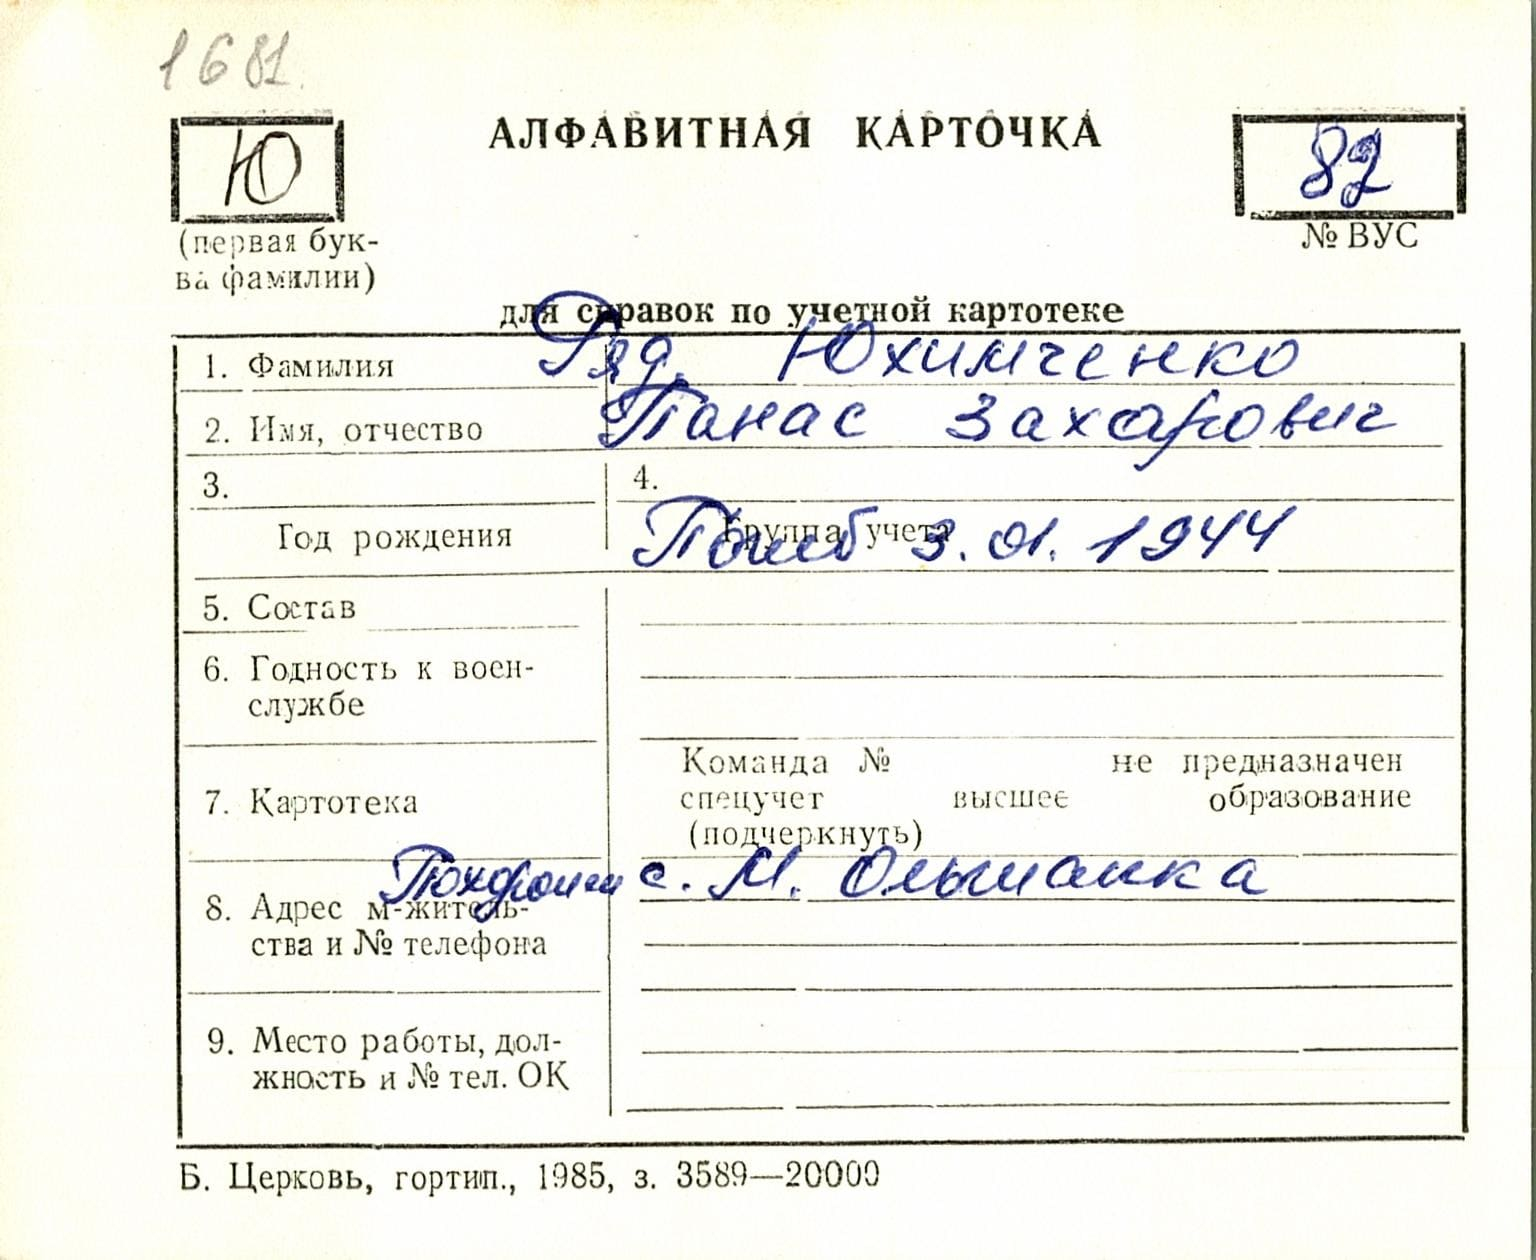 1681.
Ю
АЛФАВИТНАЯ КАРТОЧКА
82
(первая бук-
ва фамилии)
№ ВУС
для справок по учетной картотеке
1. Фамилия Ряд. Юхимченко
2. Имя, отчество Панас Захарович
3.
4.
Год рождения
Группа учета
3.01.1944
5. Состав
6. Годность к воен-
службе
Команда № не предназначен
7. Картотека
спецучет высшее образование
(подчеркнуть)
с. М. Ольшанка
8. Адрес м-житель-
ства и № телефона
9. Место работы, дол-
жность и № тел. ОК
Б. Церковь, гортип., 1985, з. 3589—20000